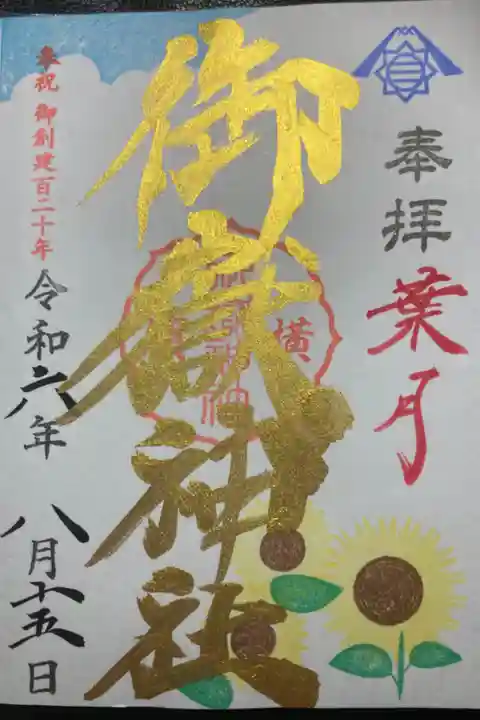 奉拝
葉月
御嶽神社
横
奉祝 御創建百二十年
令和六年
八月十五日